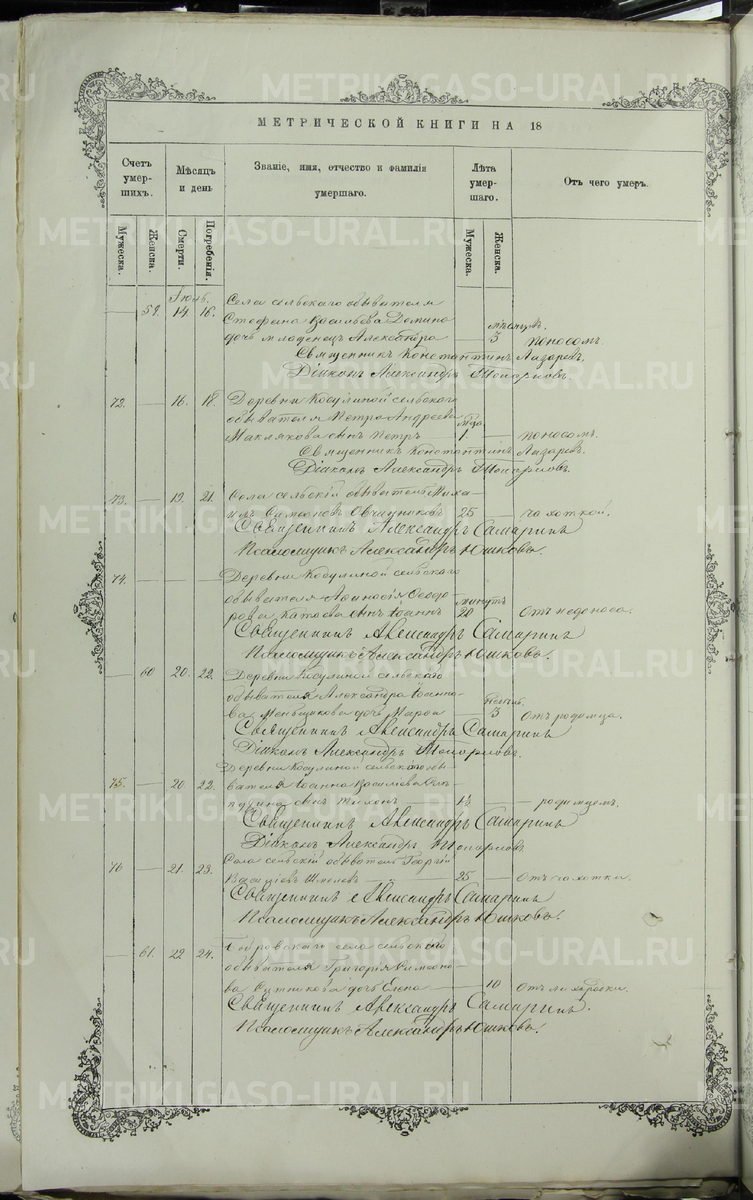 МЕТРИЧЕСКОЙ КНИГИ НА 18
Счетъ умер-шихъ. Мѣсяцъ и день Званіе, имя, отчество и фамилія умершаго. Лѣта умер-шаго. Отъ чего умеръ.
Мужеска. Женска. Смерти. Погребенія. Мужеска. Женска.
Села сельскаго обывателя
59. 14 16. Стефана Васильева Демина мѣсяц.
дочь младенецъ Александра — 3 поносомъ.
Священникъ Константинъ Лазаревъ.
Діаконъ Александръ
72. — 16. 18. Деревни Косулиной сельскаго
обывателя Петра Андреева
Маклякова сынъ Петръ — 1 — поносомъ.
Священникъ Константинъ Лазаревъ.
Діаконъ Александръ
73. — 19. 21. Села сельскій обыватель Миха-
илъ Симеоновъ Овчинниковъ 25 — чахоткой.
Священникъ Александръ Самаринъ
Псаломщикъ Александръ Юшковъ.
74. — Деревни Косулиной сельскаго
обывателя Афанасія Феодо- минутъ
рова сынъ Іоаннъ 20 Отъ недоноса.
Священникъ Александръ Самаринъ
Псаломщикъ Александръ Юшковъ.
— 60 20. 22. Деревни Косулиной сельскаго
обывателя Александра Іоанно-
ва Меньщикова дочь — 3 Отъ родимца.
Священникъ Александръ Самаринъ
Діаконъ Александръ
75. — 20. 22. Деревни Косулиной сельскаго обы-
вателя Іоанна Василіева
сынъ — родимцемъ.
Священникъ Александръ Самаринъ
Діаконъ Александръ
76 — 21. 23. Села сельскій обыватель Георгій
Василіевъ 25 — Отъ чахотки.
Священникъ Александръ Самаринъ
Псаломщикъ Александръ Юшковъ.
— 61. 22 24. села сельскаго
обывателя Григорія Симеоно-
ва Ситникова дочь Елена — 10 Отъ лихорадки.
Священникъ Александръ Самаринъ.
Псаломщикъ Александръ Юшковъ.
METRIKI.GASO-URAL.RU